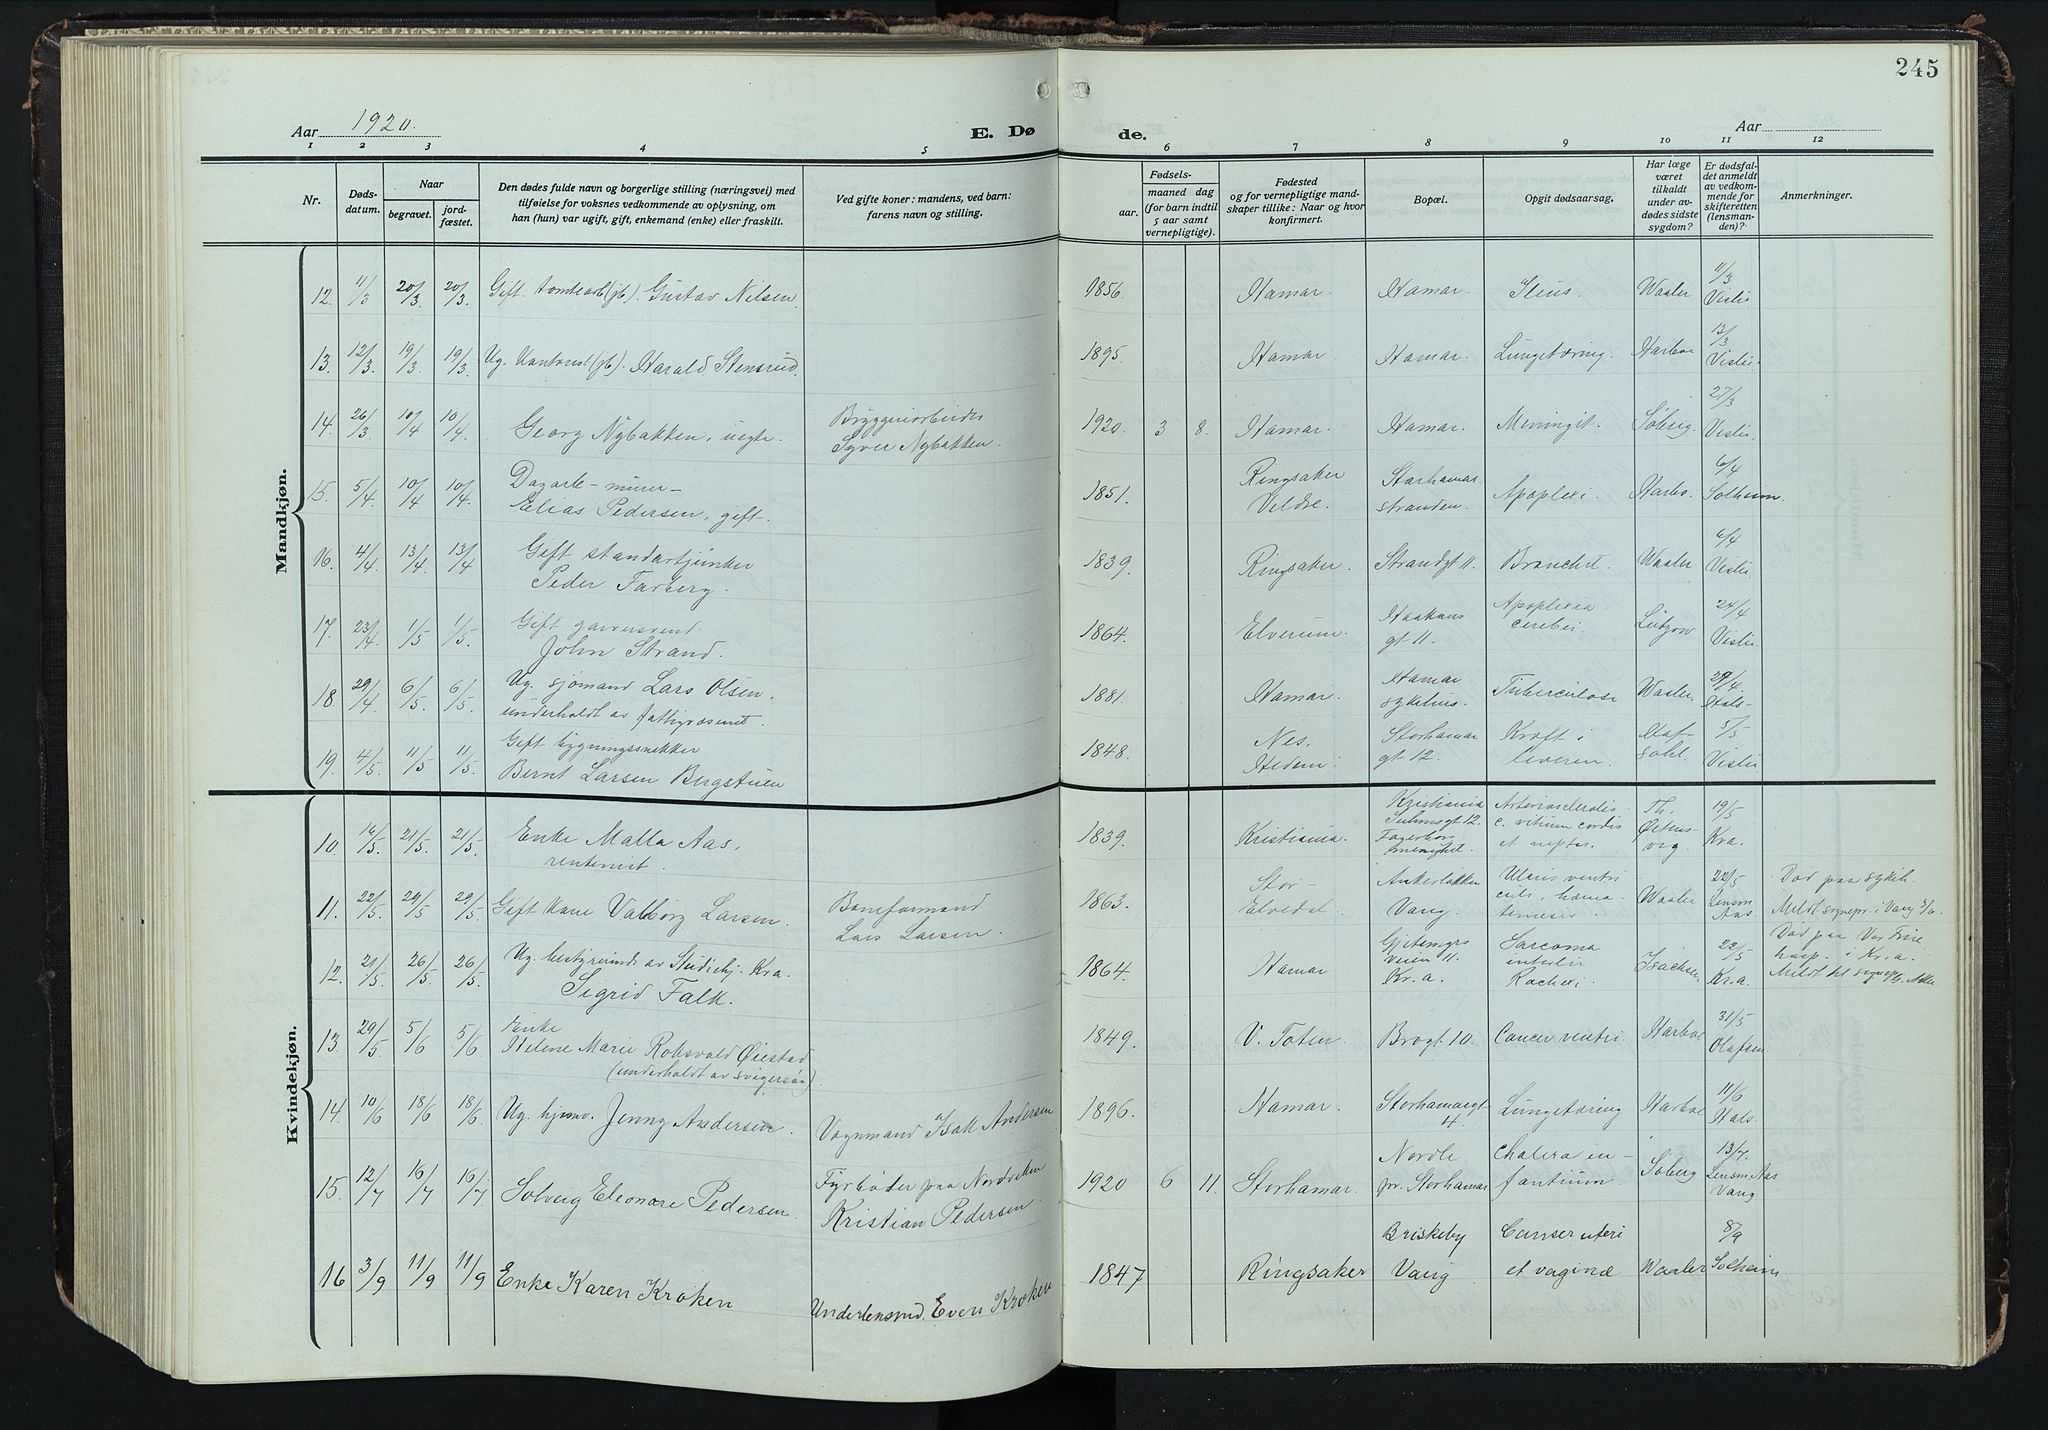 245
Aar 1920.
E. Dø
de.
Aar
1 2 3 4 5 6 7 8 9 10 11 12
Nr.
Døds-
datum.
Naar
begravet.
jord-
fæstet.
Den dødes fulde navn og borgerlige stilling (næringsvei) med
tilføielse for voksnes vedkommende av oplysning, om
han (hun) var ugift, gift, enkemand (enke) eller fraskilt.
Ved gifte koner: mandens, ved barn:
farens navn og stilling.
Fødsels-
aar.
maaned dag
(for barn indtil
5 aar samt
vernepligtige).
Fødested
og for vernepligtige mand-
skaper tillike: Naar og hvor
konfirmert.
Bopæl.
Opgit dødsaarsag.
Har læge
været
tilkaldt
under av-
dødes sidste
sygdom?
Er dødsfal-
det anmeldt
av vedkom-
mende for
skifteretten
(lensman-
den)?
Anmerkninger.
Mandkjøn.
12. 11/3 20/3 20/3 Gift. tomtearb (jb.). Gustav Nilsen. 1856. Hamar. Hamar. Ileus. Waaler 11/3 Vislie
13. 12/3. 19/3 19/3. Ug. Kontorist (jb). Harald Stensrud. 1895. Hamar. Hamar. Lungetæring. Harboe 13/3 Vislie.
14. 26/3 10/4 10/4. Georg Nybakken, uegte.
Bryggeriarbeider
Syver Nybakken.
1920. 3 8. Hamar. Hamar. Meningit. Soberg. 27/3 Vislie.
15. 5/4. 10/4 10/4.
Dagarb- murer-
Elias Pedersen, gift.
1851.
Ringsaker
Veldre.
Storhamar
stranden.
Apoplexi. Harbo. 6/4 Solheim
16. 4/4. 13/4 13/4
Gift standartjunker
Peder Farberg.
1839. Ringsaker. Strandgt 11. Bronchit. Waaler 6/4 Vislie
17. 23/4. 1/5 1/5.
Gift garversvend.
John Strand.
1864. Elverum.
Haakons
gt 11.
Apoplexia
cerebri.
Lützow 24/4 Vislie.
18. 29/4 6/5. 6/5.
Ug. sjømand Lars Olsen.
underholdt av fattigvæsenet.
1881. Hamar.
Hamar
sykehus.
Tuberculose Waaler. 29/4. Hals.
19. 4/5. 11/5 11/5.
Gift bygningssnekker
Bernt Larsen Bergstuen
1848.
Nes,
Hedem.
Storhamar
gt 12.
Kræft i
leveren.
Olaf-
5/5 Vislie
Kvindekjøn.
10. 14/5. 21/5. 21/5.
Enke Malla Aas,
rentenist.
1839. Kristiania.
Kristiania
Suhmsgt 12.
Fagerborg
menighet.
Arteriosclerosis
c. vitium cordis
et
Th.
19/5 Kra.
11. 22/5. 29/5 29/5. Gift kone Valborg Larsen.
Baneformand
Lars Larsen.
1863.
Stor-
Elvedal.
Ankerløkken
Vang.
Ulcus ventri
culi, hæma
temeser.
Waaler 22/5 Lensm. Aas
Død paa sykeh.
Meldt sognepr. i Vang 3/6.
12. 21/5. 26/5 26/5.
Ug. bestyrerinde av Kra.
Sigrid Falk.
1864 Hamar
veien 11.
Kr.a.
Sarcoma
Isachsen 22/5 Kr.a
Død paa Vor Frue
hosp. i Kr.a.
Meldt til
13. 29/5 5/6 5/6
Enke
Helene Marie Roksvold Øiestad
(underholdt av svigersøn).
1849. V. Toten. Brogt 10. Cancer ventri. Harboe 31/5 Olafsen
14. 10/6 18/6 18/6. Ug. hjemv. Jenny Andersen. Vognmand Isak Andersen 1896. Hamar. Storhamargt 4. Lungetæring Harboe 11/6 Hals.
15. 12/7 16/7 16/7. Solveig Eleonore Pedersen.
Fyrbøder paa Nordviken
Kristian Pedersen.
1920 6 11. Storhamar.
Nordli
pr. Storhamar.
Cholera in-
fantium.
Soberg 13/7. Lensm. Aas Vang
16 3/9 11/9 11/9 Enke Karen Kroken Underlensmd. Even Kroken 1847 Ringsaker
Briskeby
Vang
Canser uteri
et vaginæ
Waaler 8/9 Solheim